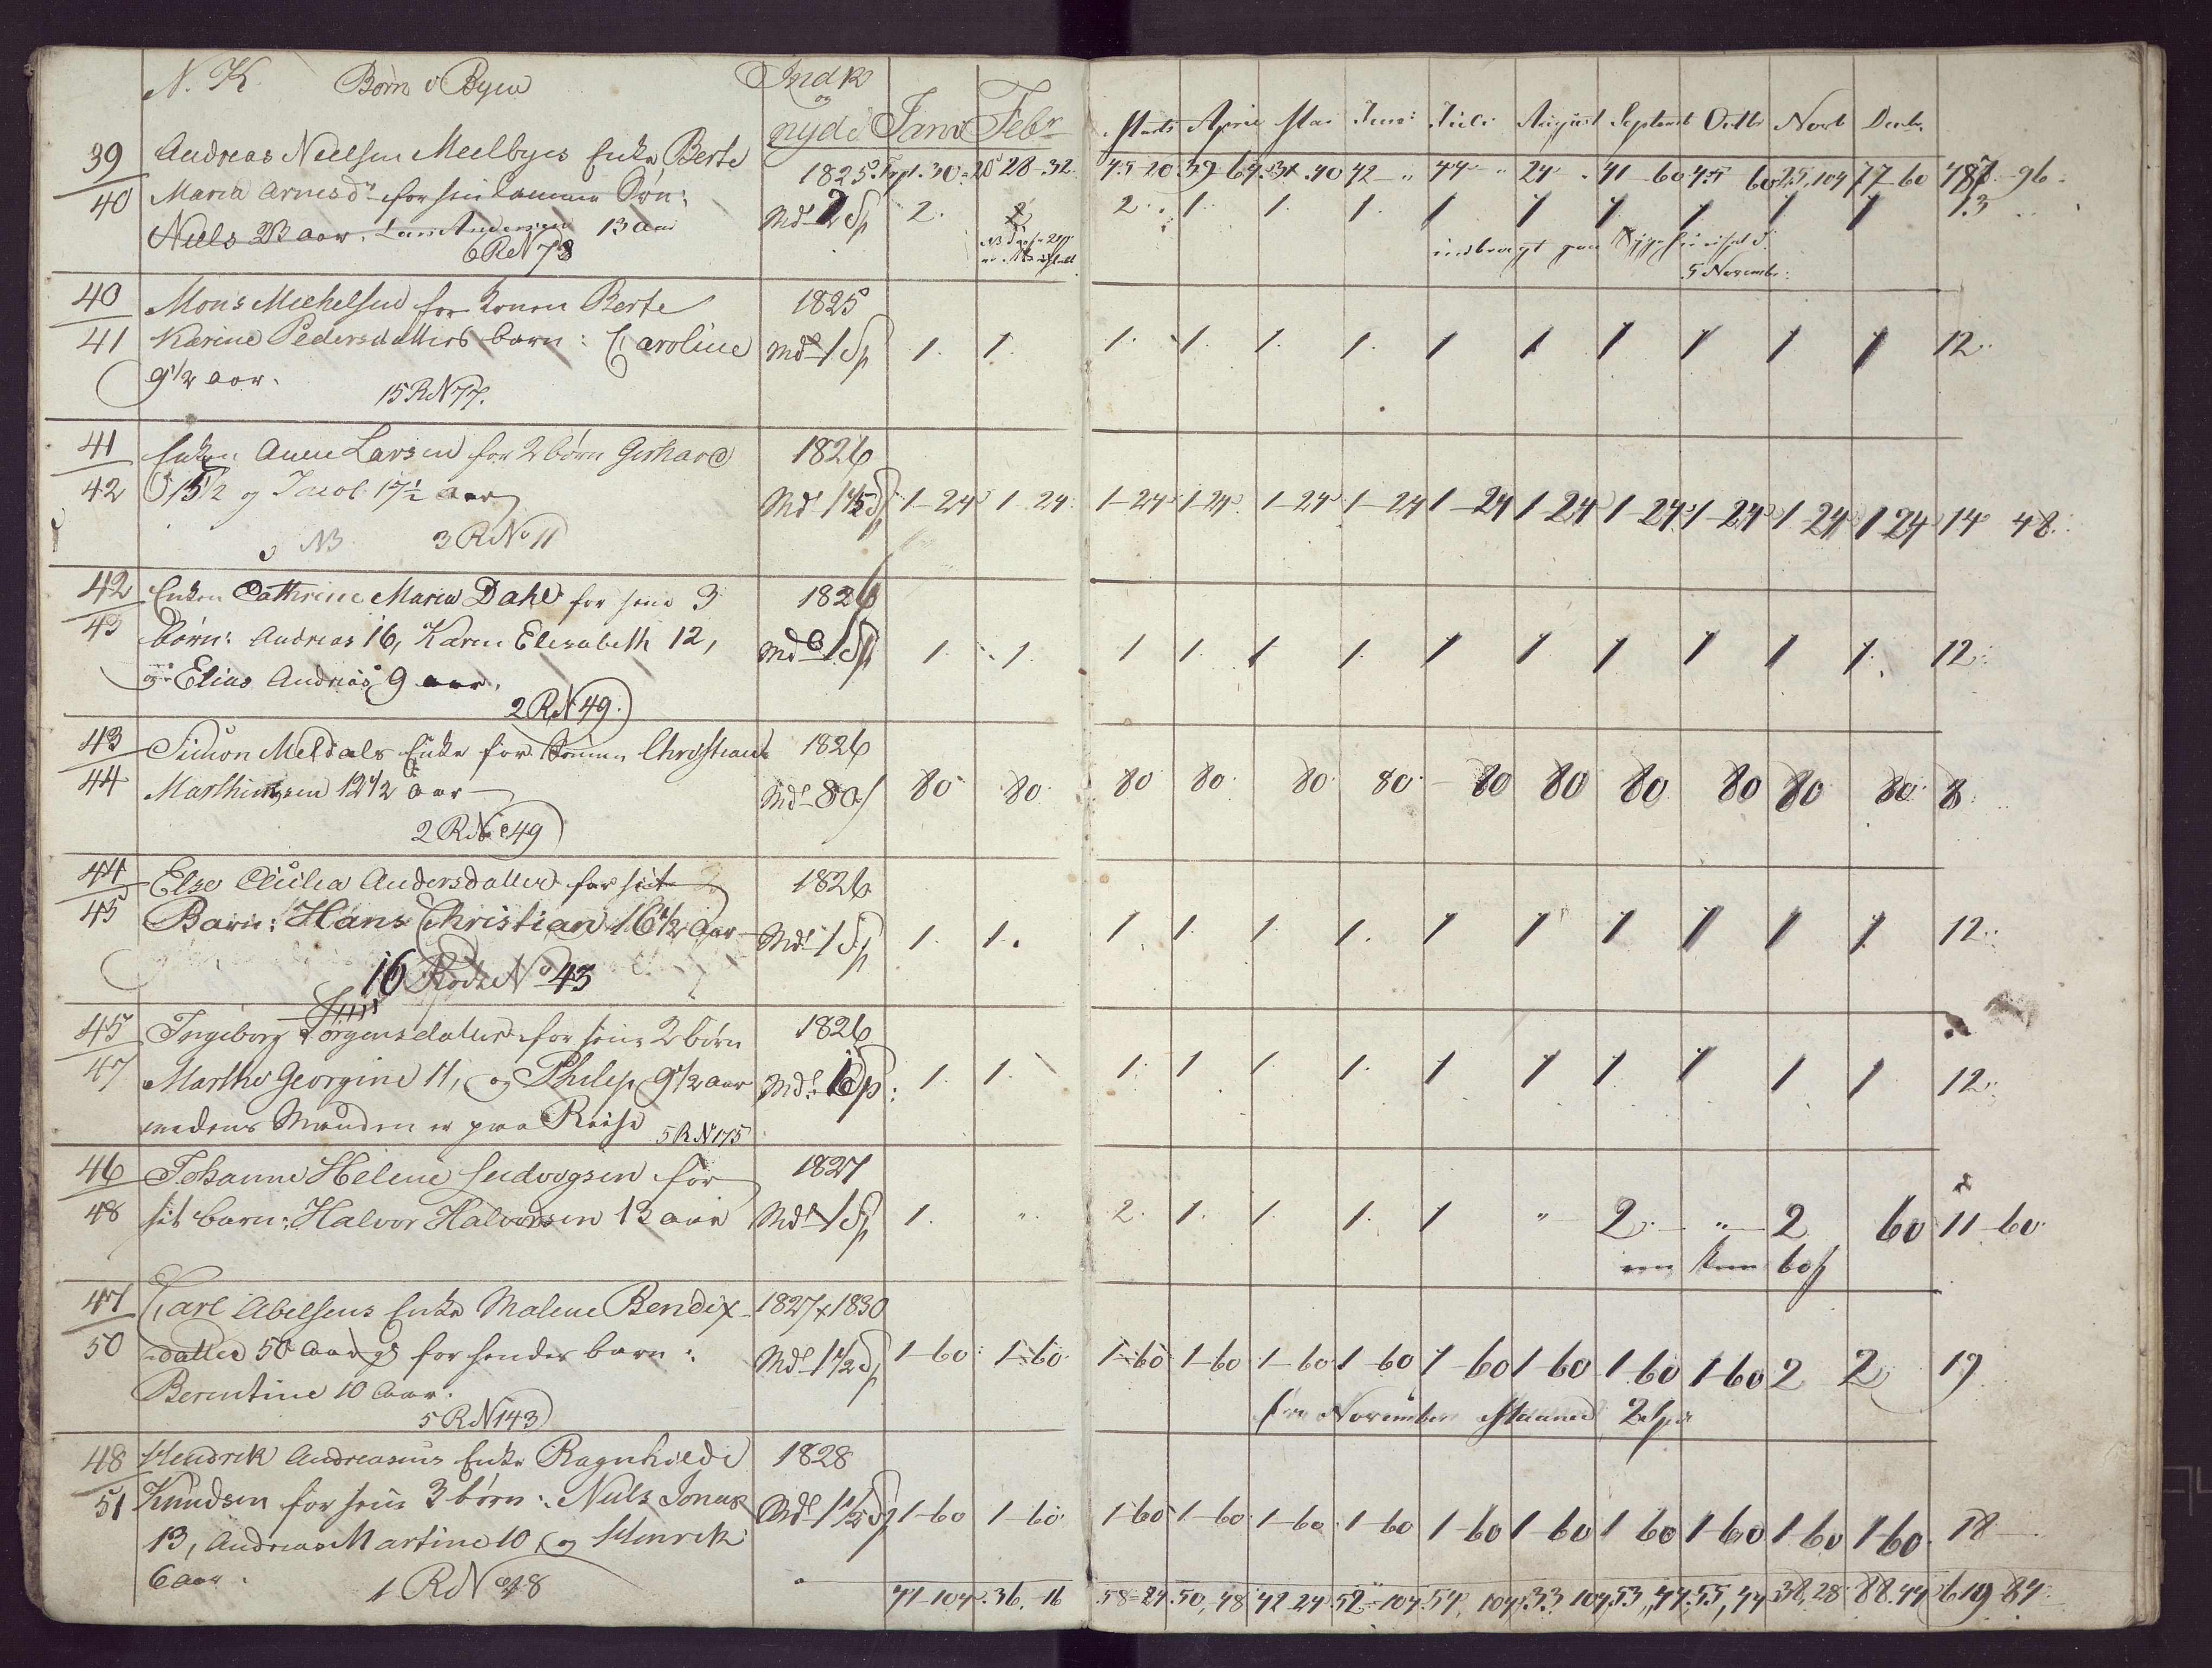 N. K. Börn i Byen Indk og nyde Janr Febr Marts April Mai Juni Juli August Septemb Octbr Novb Decbr
39 Andreas Nielsen Meelbyes Enke Berte 1825 Trpt. 30 28 32 45 20 39 64 31 40 42 „ 44 „ 24 „ 41 60 45 60 25, 104 77 60 487 96
40 Maria Arnesdr for sin lamme Søn: Md 2 Sp 2. 2 2 1. 1. 1. 1 1 1 1 1 1 13
Niels 23 aar. Lars Andersen 13 Aar indbragt paa
6 R N 78 5 November:
40 Mons Michelsen for Konen Berte 1825
41 Karine Pedersdatters barn: Caroline Md 1 Sp 1. 1. 1. 1. 1. 1. 1 1 1 1 1 1 12
9 1/2 aar.
15 R N 77.
41 Enken Anne Larsen for 2 börn Gerhard 1826
42 15 1/2 og Jacob 17 1/2 aar Md 1 1/5 Sp 1-24 1-24 1-24 1-24 1-24 1-24 1-24 1-24 1-24 1-24 1-24 1-24 14 48
NB 3 R No 11
42 Enken Cathrine Maria Dahl for sine 3 1826
43 börn: Andreas 16, Karen Elisabeth 12, Md 1 Sp 1. 1. 1 1. 1 1. 1 1 1 1 1 1. 12
og Elias Andreas 9 aar.
2 R N 49.
43 Simon Meldals Enke for Sönnen Christian 1826
44 Marthinsen 12 1/2 aar Md 80 s 80 80 80 80 80 80 80 80 80 80 80 80 8
2 R No 49
44 Else Cicilia Andersdatter for sit 1826
45 Barn: Hans Christian 16 1/2 aar Md 1 Sp 1. 1. 1 1. 1 1. 1 1 1 1 1 1 12
16 Rode No 43
45 Ingeborg Jörgensdatter for sine 2 börn 1826
47 Marthe Georgine 11, og Philip 9 1/2 aar Md 1 Sp: 1. 1. 1. 1 1 1. 1 1 1 1 1 1 12
medens Manden er paa Reise 5 R N 175
46 Johanne Helene Ludvigsen for 1827
48 sit barn: Halvor Halvorsen 13 aar Md 1 Sp 1. „ 2. 1. 1. 1. 1 „ 2. „ 2 60 11-60
kun 60 s
47 Carl Abelsens Enke Malene Bendix- 1827 1830
50 datter 50 Aar og for hendes barn: Md 1 1/2 Sp 1-60 1-60 1-60 1-60 1-60 1-60 1-60 1-60 1-60 1-60 2 2 19
Berentine 10 Aar. fra November Maaned 2 Spd
5 R N 143
48 Hendrik Andreasens Enke Ragnhilde 1828
51 Knudsen for sine 3 börn: Niels Jonas Md 1 1/2 Sp 1-60 1-60 1-60 1-60 1-60 1-60 1-60 1-60 1-60 1-60 1-60 1-60 18
13, Andreas Martine 10, og Henrik
6 aar.
1 R No 48 41-104 36-16 58-24 50-48 42-24 52-104 54, 104 33 104 53, 44 55, 44 38, 28 88. 44 619 84